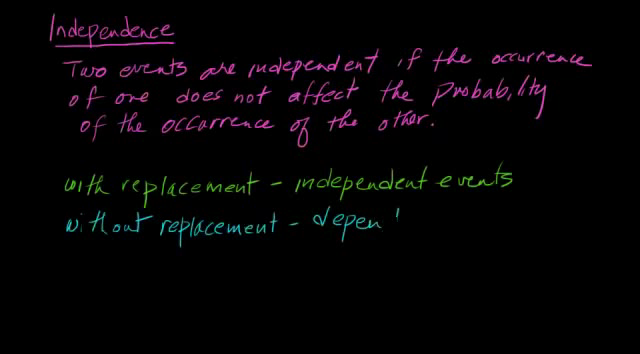 Independence
Two events are independent if the occurrence
of one does not affect the probability
of the occurrence of the other.
with replacement - independent events
without replacement - depen